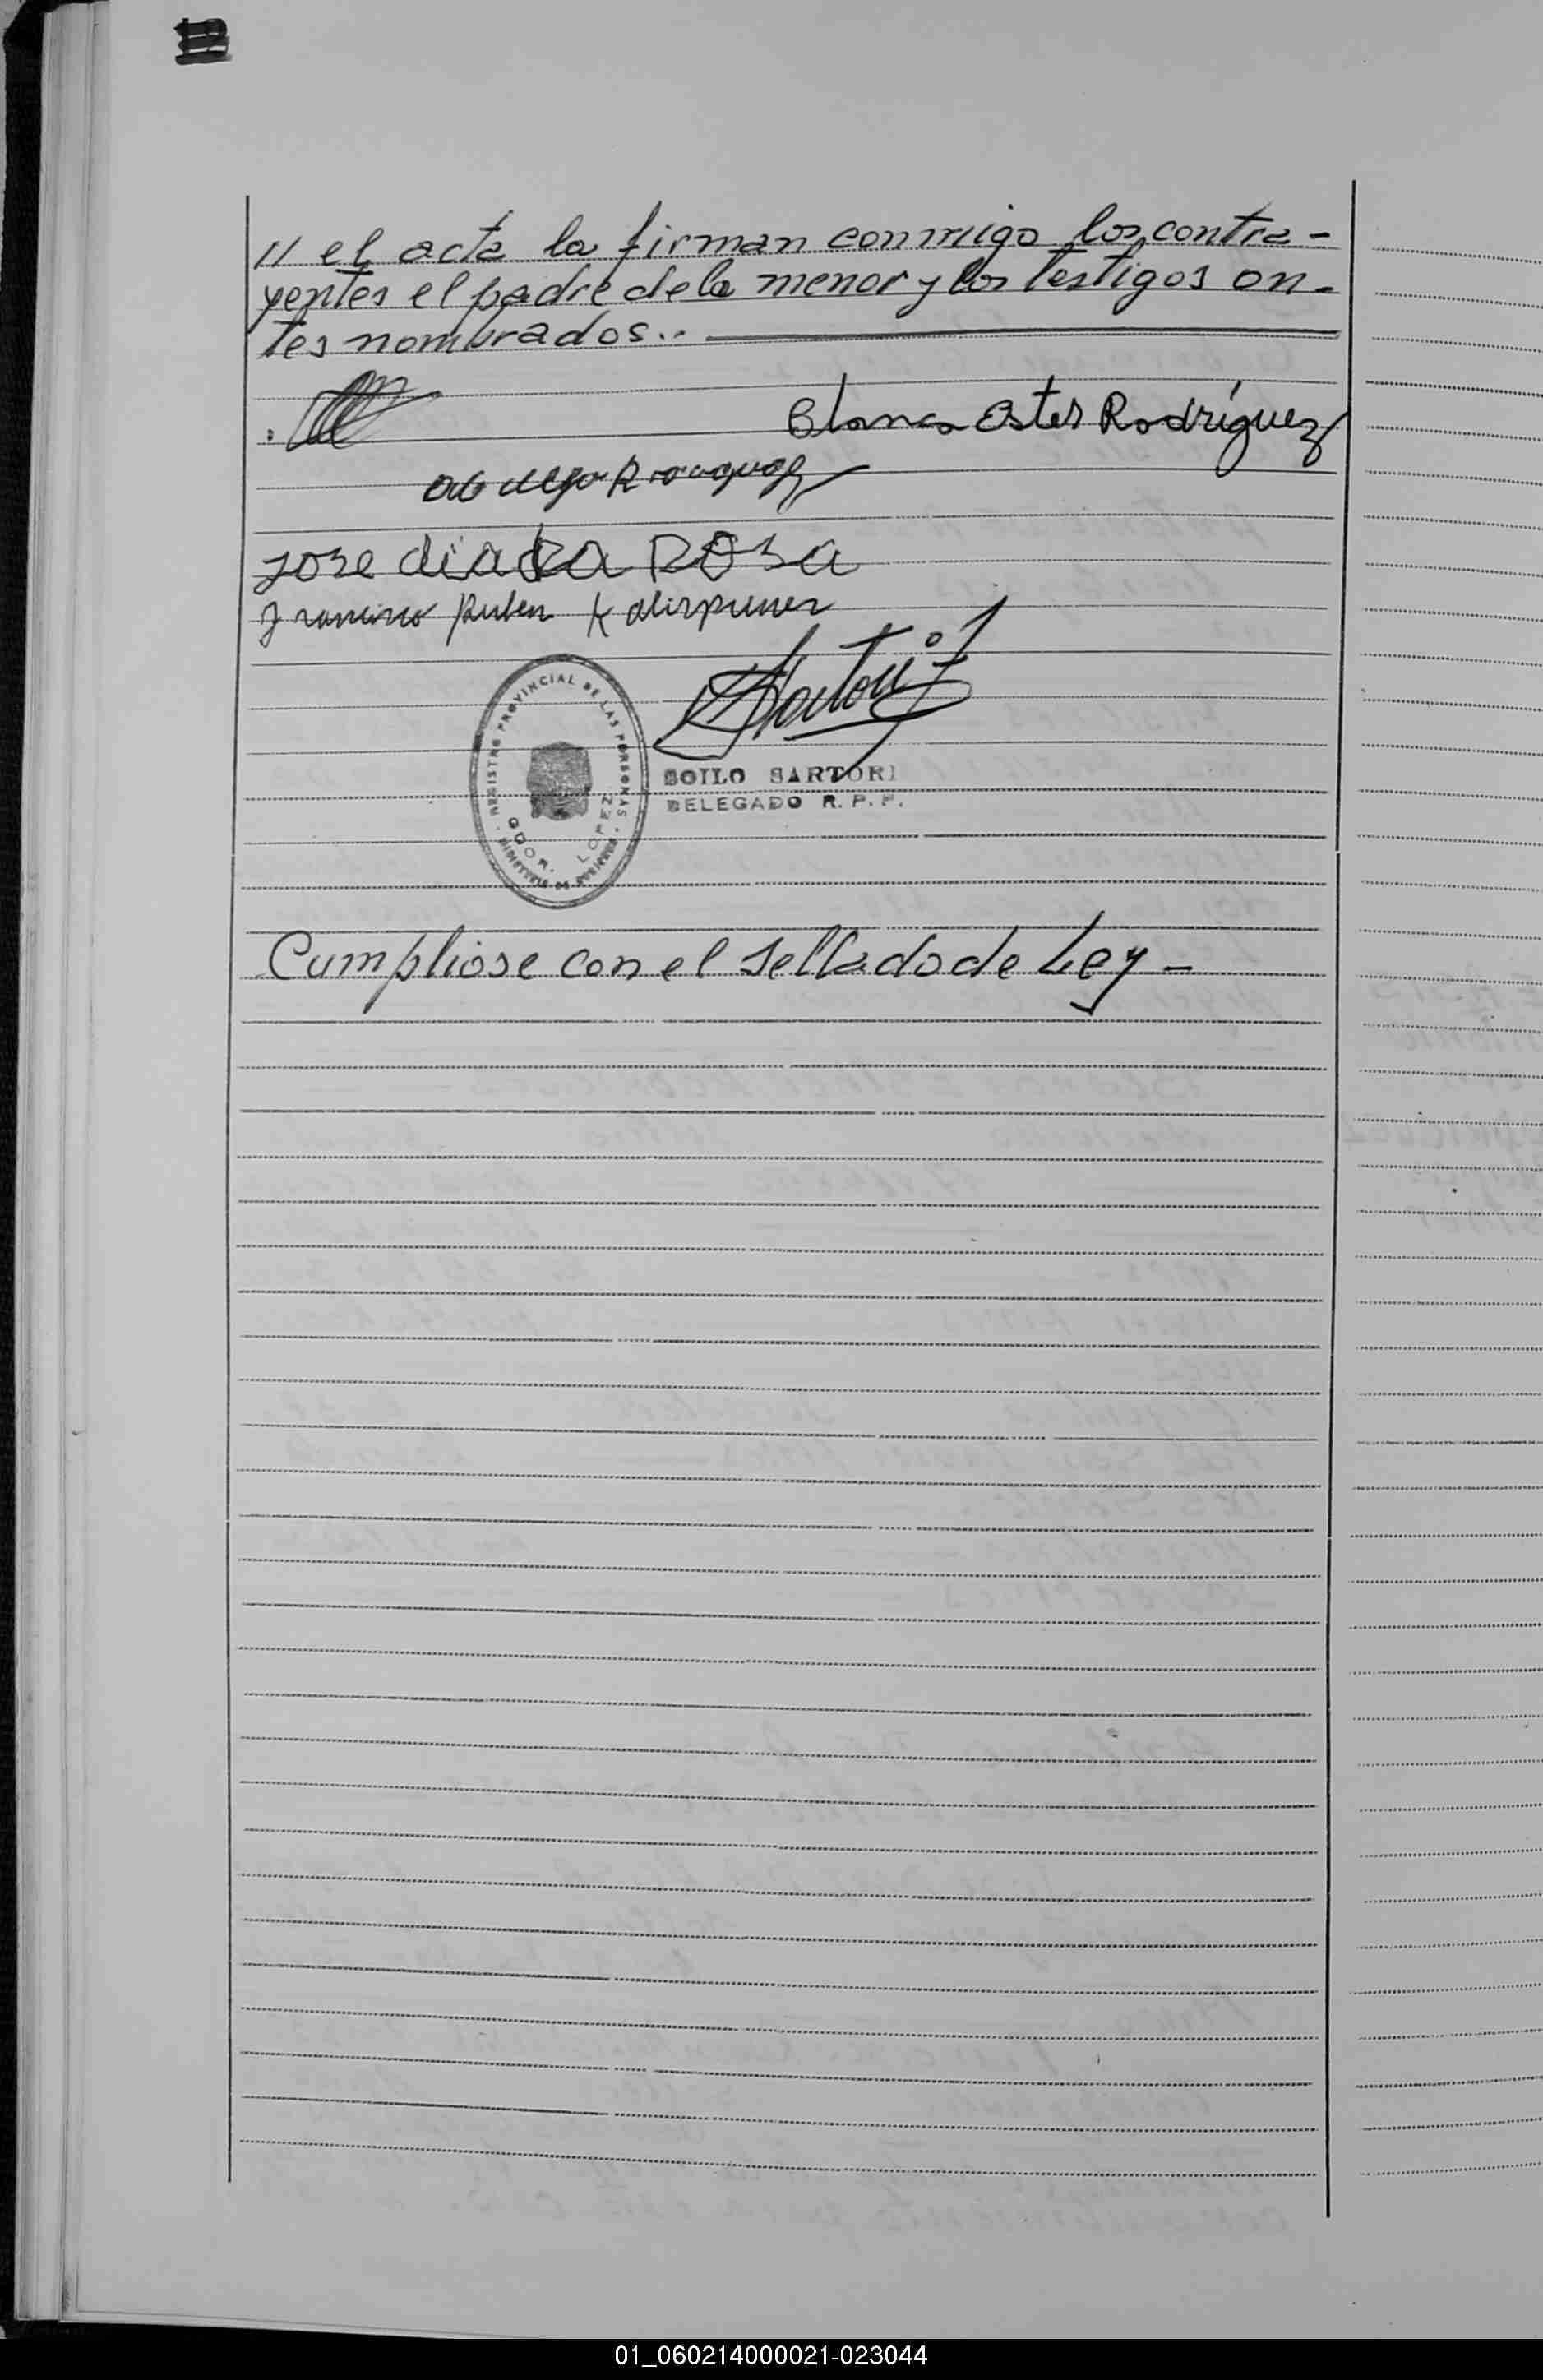 // el acta la firman conmigo los contra-
yentes el padre de la menor y los testigos an-
tes nombrados..
Blanca Ester Rodríguez
Jose dia
Rosa
Francisco Ruben
REGISTRO PROVINCIAL DE LAS PERSONAS
MINISTERIO DE GOBIERNO
GDOR. LOPEZ
SOILO SARTORI
DELEGADO R. P. P.
Cumpliose con el sellado de Ley -
01_060214000021-023044